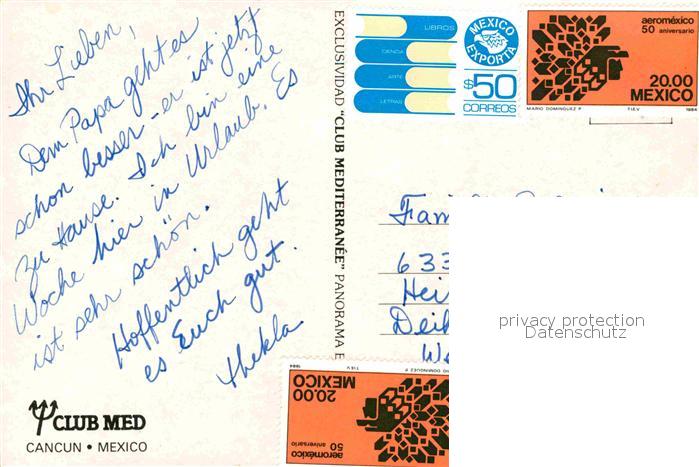 Ihr Lieben,
Dem Papa geht es
schon besser - er ist jetzt
zu Hause. Ich bin eine
Woche hier in Urlaub. Es
ist sehr schön.
Hoffentlich geht
es Euch gut.
Thekla
CLUB MED
CANCUN • MEXICO
EXCLUSIVIDAD "CLUB MEDITERRANÉE" PANORAMA
LIBROS
CIENCIA
ARTE
LETRAS
MEXICO
EXPORTA
$50
CORREOS
aeroméxico
50 aniversario
20.00
MEXICO
MARIO DOMINGUEZ P. T.I.E.V. 1984
633
privacy protection
Datenschutz
aeroméxico
50 aniversario
20.00
MEXICO
DOMINGUEZ P. T.I.E.V. 1984